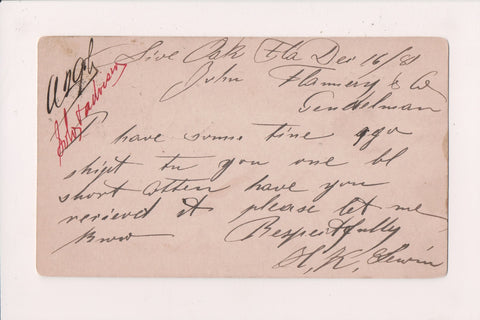 Live Oak Fla Dec 16/81
John Flannery & Co
Gendelman
I have some tine ago
shipt tu you one bl
short cotten have you
recievd it please let me
know Respectfully
H. K.